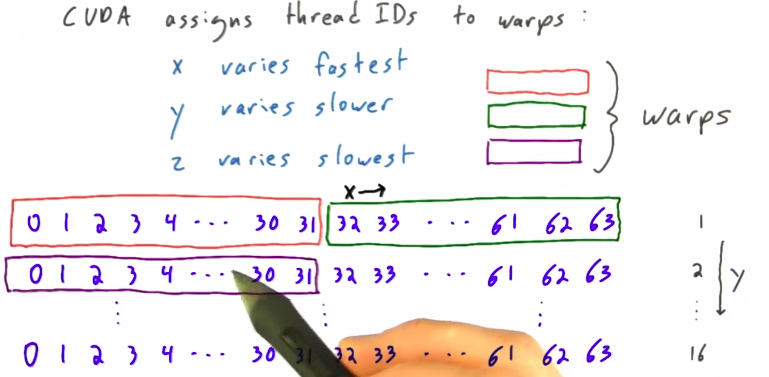 CUDA assigns thread IDs to warps :
x varies fastest
y varies slower
z varies slowest
warps
x→
0 1 2 3 4 ··· 30 31 32 33 ··· 61 62 63 1
0 1 2 3 4 ··· 30 31 32 33 ··· 61 62 63 2
y
⋮ ⋮ ⋮ ⋮
0 1 2 3 4 ··· 30 31 32 33 ··· 61 62 63 16